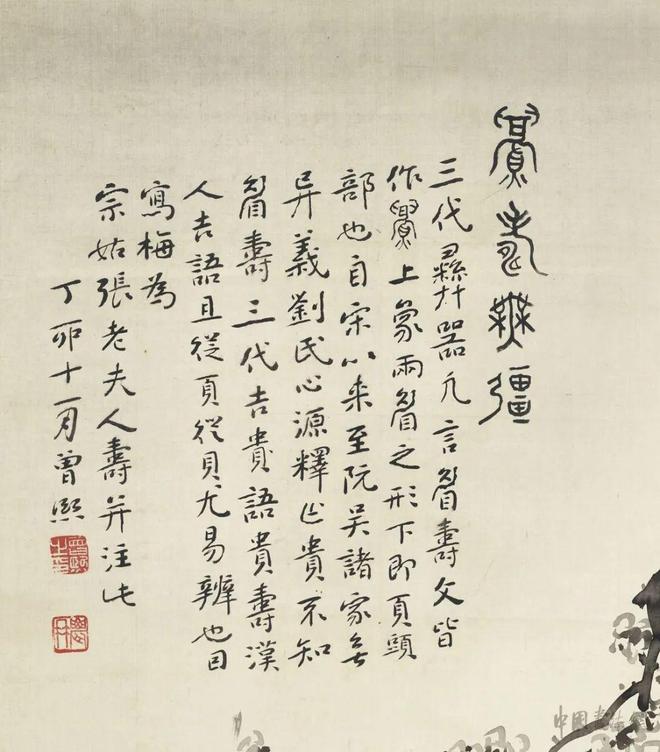 眉壽無彊
三代彝器凡言眉壽文皆
作釁上象兩眉之形下即頁頭
部也自宋以来至阮吴諸家無
异義劉氏心源釋此貴不知
眉壽三代吉貴語貴壽漢
人吉語且從頁從貝尤易辨也因
寫梅為
宗姑張老夫人壽并注此
丁卯十一月曾熙